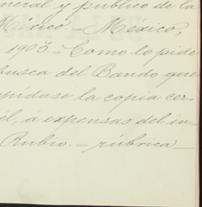 neral y público de la
México. — México,
1903. — Como lo pide
busca del Bando que
pídase la copia cer-
él, a expensas del in-
Rubio. — rúbrica —